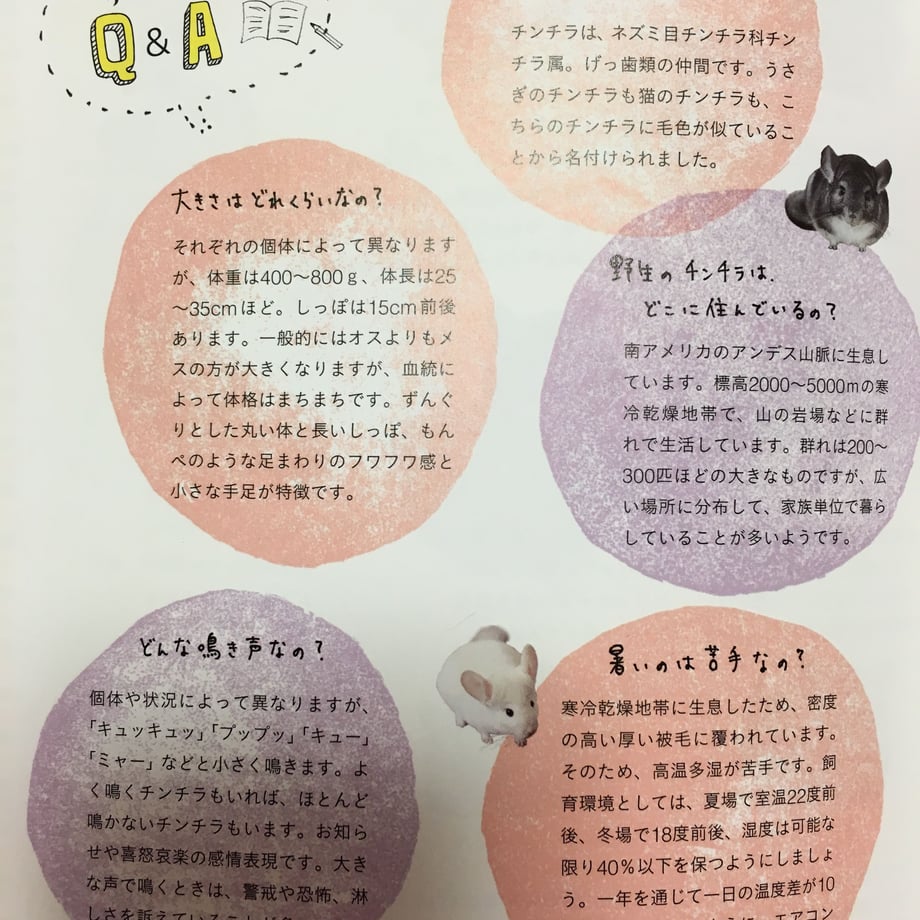 Q&A
チンチラは、ネズミ目チンチラ科チン
チラ属。げっ歯類の仲間です。うさ
ぎのチンチラも猫のチンチラも、こ
ちらのチンチラに毛色が似ているこ
とから名付けられました。
大きさはどれくらいなの?
それぞれの個体によって異なります
が、体重は400〜800g、体長は25
〜35cmほど。しっぽは15cm前後
あります。一般的にはオスよりもメ
スの方が大きくなりますが、血統に
よって体格はまちまちです。ずんぐ
りとした丸い体と長いしっぽ、もん
ぺのような足まわりのフワフワ感と
小さな手足が特徴です。
野生のチンチラは、
どこに住んでいるの?
南アメリカのアンデス山脈に生息し
ています。標高2000〜5000mの寒
冷乾燥地帯で、山の岩場などに群
れで生活しています。群れは200〜
300匹ほどの大きなものですが、広
い場所に分布して、家族単位で暮ら
していることが多いようです。
どんな鳴き声なの?
個体や状況によって異なりますが、
「キュッキュッ」「プップッ」「キュー」
「ミャー」などと小さく鳴きます。よ
く鳴くチンチラもいれば、ほとんど
鳴かないチンチラもいます。お知ら
せや喜怒哀楽の感情表現です。大き
な声で鳴くときは、警戒や恐怖、淋
しさを訴えていること
暑いのは苦手なの?
寒冷乾燥地帯に生息したため、密度
の高い厚い被毛に覆われています。
そのため、高温多湿が苦手です。飼
育環境としては、夏場で室温22度前
後、冬場で18度前後、湿度は可能な
限り40%以下を保つようにしましょ
う。一年を通じて一日の温度差が10
エアコン